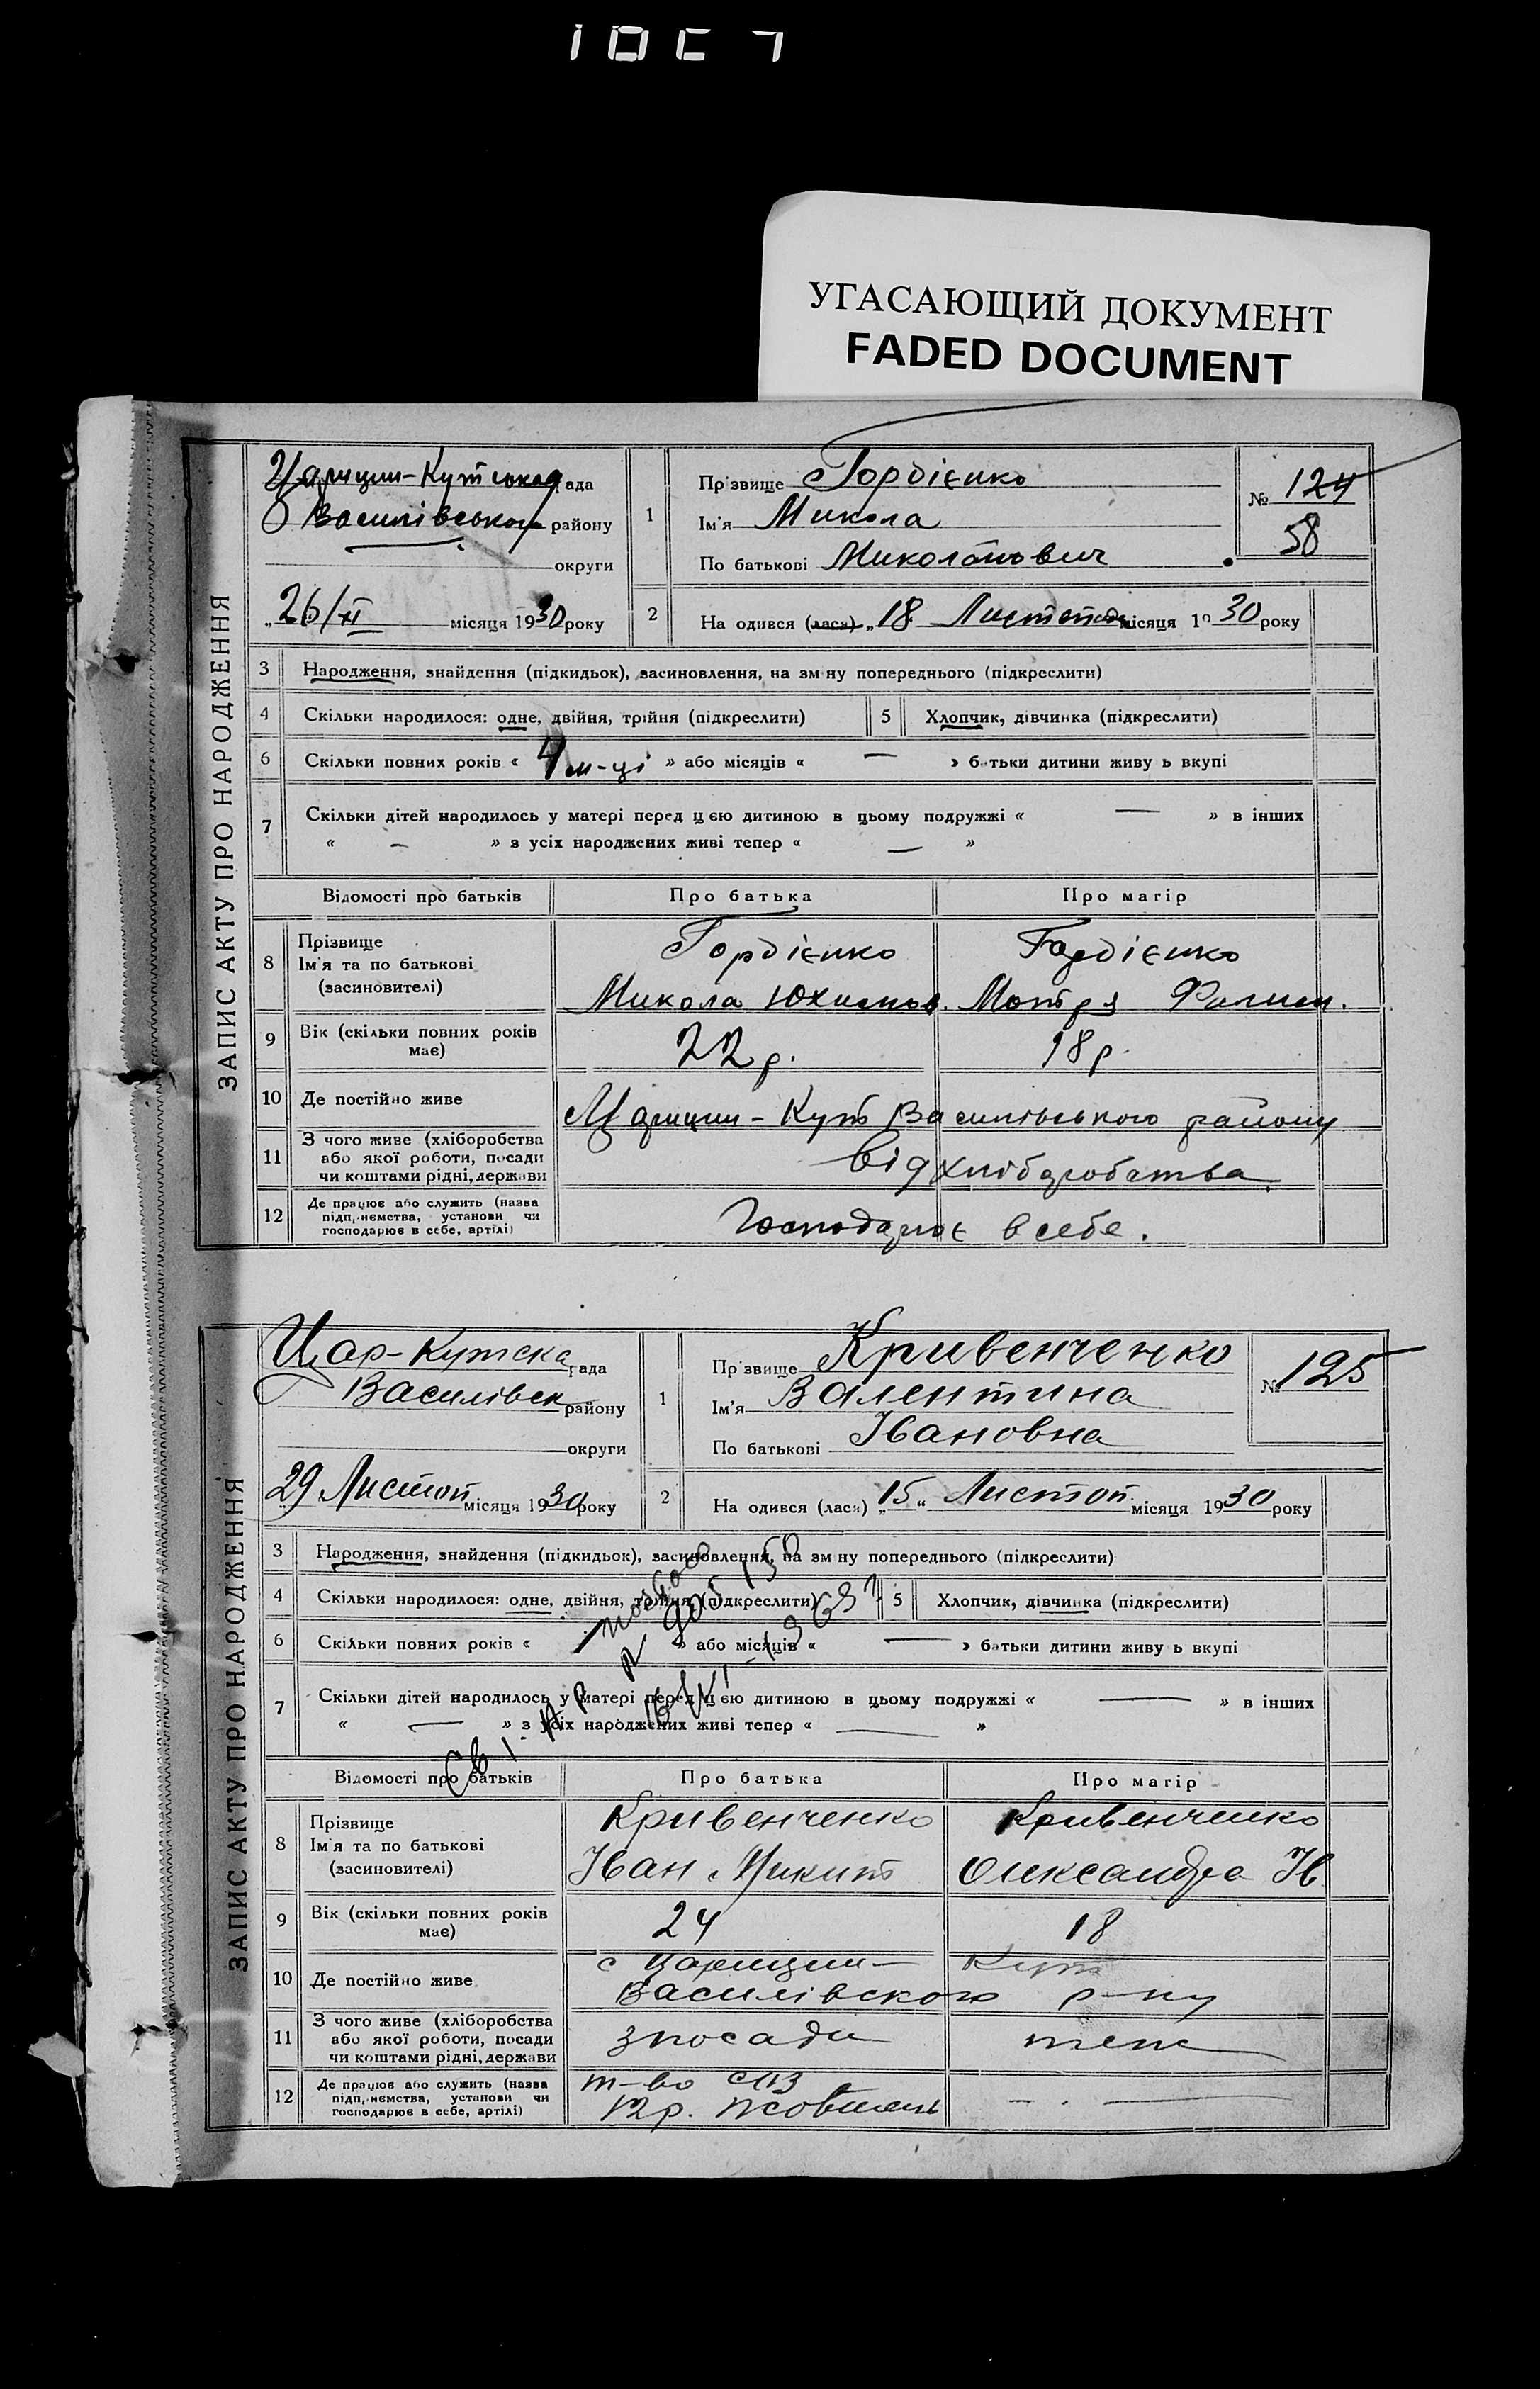 УГАСАЮЩИЙ ДОКУМЕНТ
FADED DOCUMENT
ЗАПИС АКТУ ПРО НАРОДЖЕННЯ
Царицин-Кутська рада
Василівського району
округи
„26/XI місяця 1930 року
1 Прізвище Гордієнко
Ім'я Микола
По батькові Миколайович
№ 124
58
2 На одився (лася) „18 Листопад місяця 1930 року
3 Народження, знайдення (підкидьок), засиновлення, на зм ну попереднього (підкреслити)
4 Скільки народилося: одне, двійня, трійня (підкреслити) 5 Хлопчик, дівчинка (підкреслити)
6 Скільки повних років « 4 м-ці » або місяців « — » батьки дитини живу ь вкупі
7 Скільки дітей народилось у матері перед цею дитиною в цьому подружжі « — » в інших
« — » з усіх народжених живі тепер « — »
Відомості про батьків Про батька Про матір
8 Прізвище Гордієнко Гордієнко
Ім'я та по батькові
(засиновителі) Микола Юхимов. Мотря
9 Вік (скільки повних років має) 22 р. 18 р.
10 Де постійно живе Царицин-Кут Василівського району
11 З чого живе (хліборобства
або якої роботи, посади
чи коштами рідні, держави від хліборобства
12 Де працює або служить (назва
підп, нємства, установи чи
господарює в себе, артілі) Господарює в себе.
ЗАПИС АКТУ ПРО НАРОДЖЕННЯ
Цар-Кутска рада
Василівск району
округи
29 Листоп місяця 1930 року
1 Прізвище Кривенченко
Ім'я Валентина
По батькові Івановна
№ 125
2 На одився (лася) „15“ Листоп місяця 1930 року
3 Народження, знайдення (підкидьок), засиновлення, на зм ну попереднього (підкреслити)
4 Скільки народилося: одне, двійня, трійня (підкреслити) 5 Хлопчик, дівчинка (підкреслити)
6 Скільки повних років « » або місяців « — » батьки дитини живу ь вкупі
7 Скільки дітей народилось у матері перед цею дитиною в цьому подружжі « — » в інших
« — » з усіх народжених живі тепер « — »
Відомості про батьків Про батька Про матір
8 Прізвище Кривенченко Кривенченко
Ім'я та по батькові
(засиновителі) Іван Микит Олександра Ів
9 Вік (скільки повних років має) 24 18
10 Де постійно живе с Царицин-Кут
Василівского р-ну
11 З чого живе (хліборобства
або якої роботи, посади
чи коштами рідні, держави з посади теж
12 Де працює або служить (назва
підп, нємства, установи чи
господарює в себе, артілі) т-во — . —